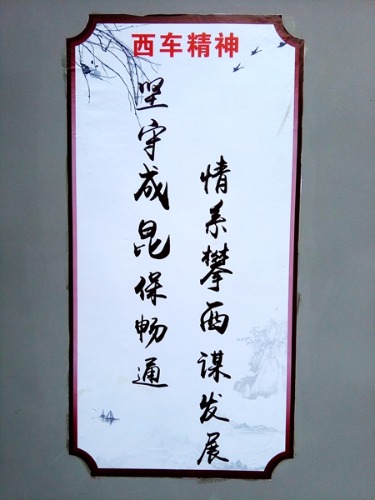 西车精神
坚守成昆保畅通
情系攀西谋发展